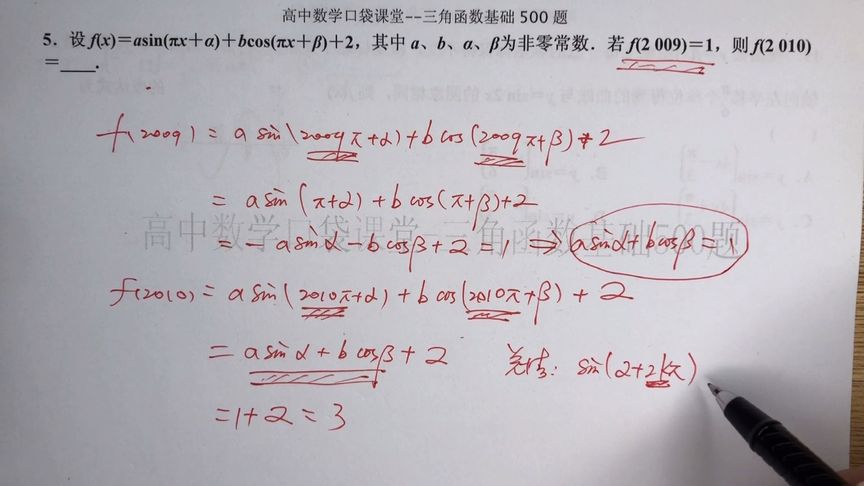 高中数学口袋课堂--三角函数基础500题
5．设f(x)=asin(πx+α)+bcos(πx+β)+2，其中a、b、α、β为非零常数．若f(2 009)=1，则f(2 010)
=____.
f(2009) = a sin(2009π+α)+b cos(2009π+β)+2
= a sin(π+α)+b cos(π+β)+2
= -a sinα-b cosβ+2=1 ⇒ a sinα+b cosβ=1
高中数学口袋课堂--三角函数基础500题
f(2010) = a sin(2010π+α)+b cos(2010π+β)+2
= a sinα+b cosβ+2
sin(α+2kπ)
=1+2=3